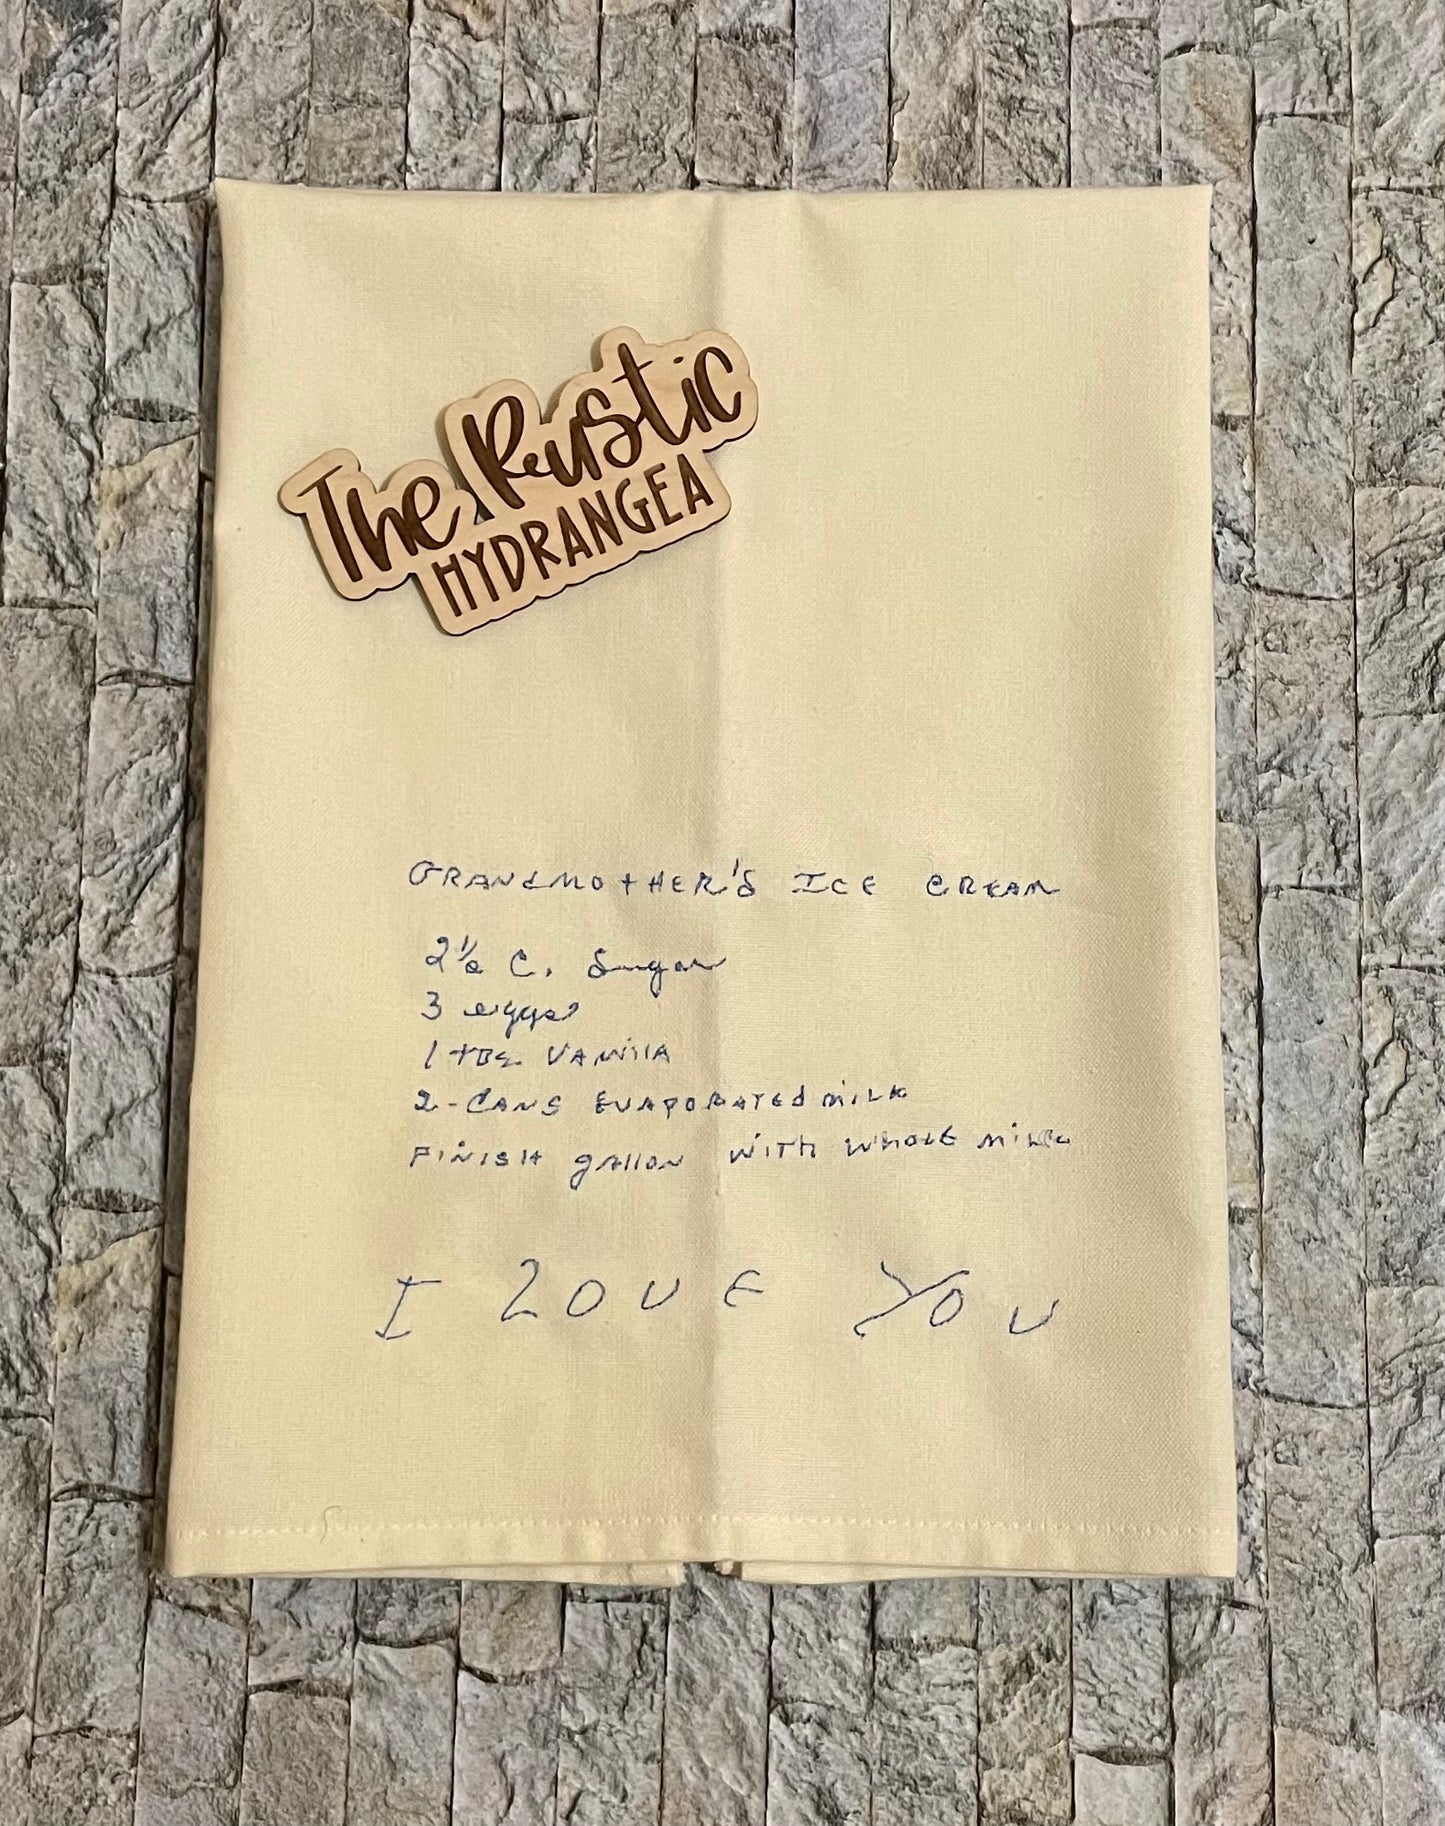 The Rustic
HYDRANGEA
GRANdMOtHER'S ICE CREAM
2 1/2 C. Sugar
3 eggs
1 tBS VANillA
2-CANS EVAPORATEd MiLK
FiNISH gAllON WiTH WHOLE MiLK
I LOVE YOU